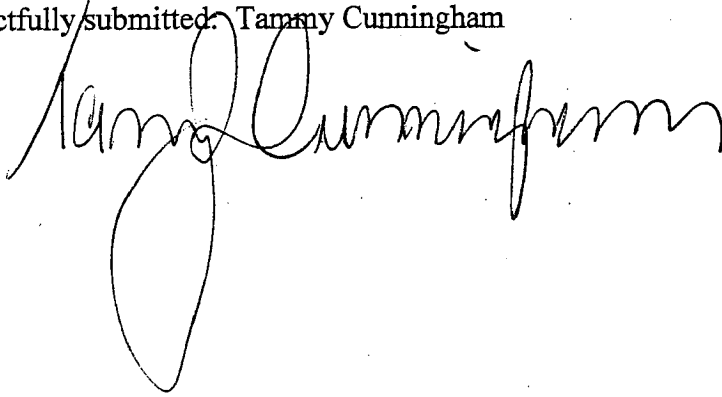 ctfully submitted: Tammy Cunningham
Tammy Cunningham